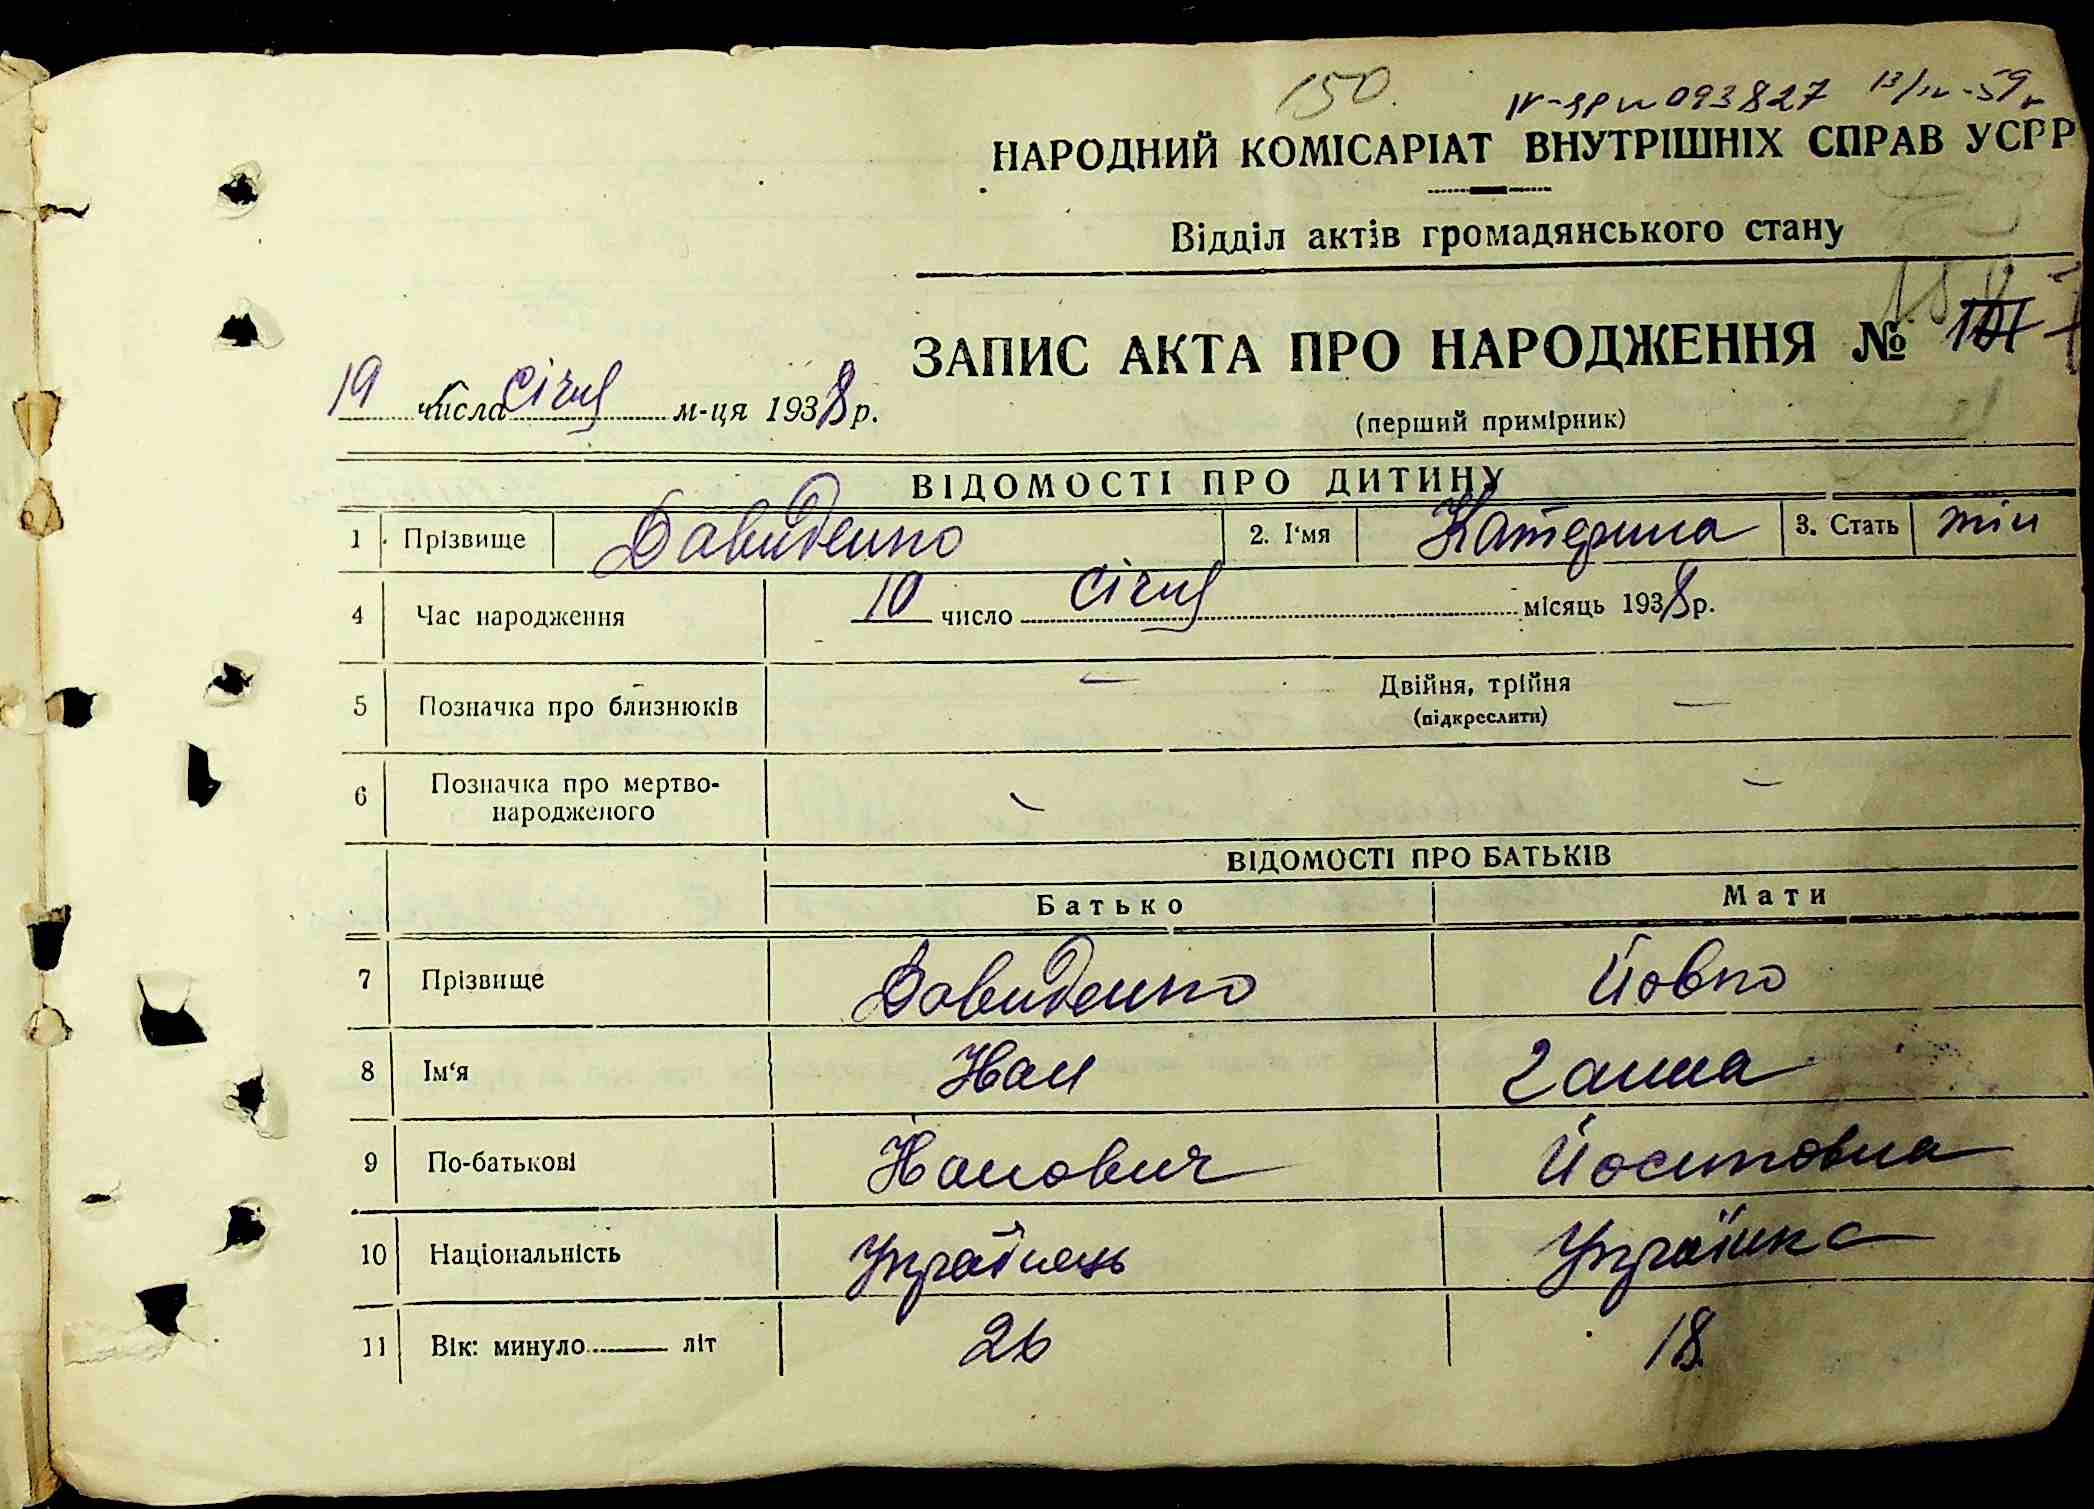 150.
093827
НАРОДНИЙ КОМІСАРІАТ ВНУТРІШНІХ СПРАВ УСРР
Відділ актів громадянського стану
ЗАПИС АКТА ПРО НАРОДЖЕННЯ №
19 числа січня м-ця 1938 р.
(перший примірник)
ВІДОМОСТІ ПРО ДИТИНУ
1 Прізвище Давиденко 2. І'мя Катерина 3. Стать жін
4 Час народження 10 число січня місяць 1938 р.
Двійня, трійня
5 Позначка про близнюків (підкреслити)
6 Позначка про мертво-
народженого
ВІДОМОСТІ ПРО БАТЬКІВ
Батько Мати
7 Прізвище Давиденко Йовко
8 Ім'я Іван Ганна
9 По-батькові Іванович Йосиповна
10 Національність Українець Українка
11 Вік: минуло літ 26 18.